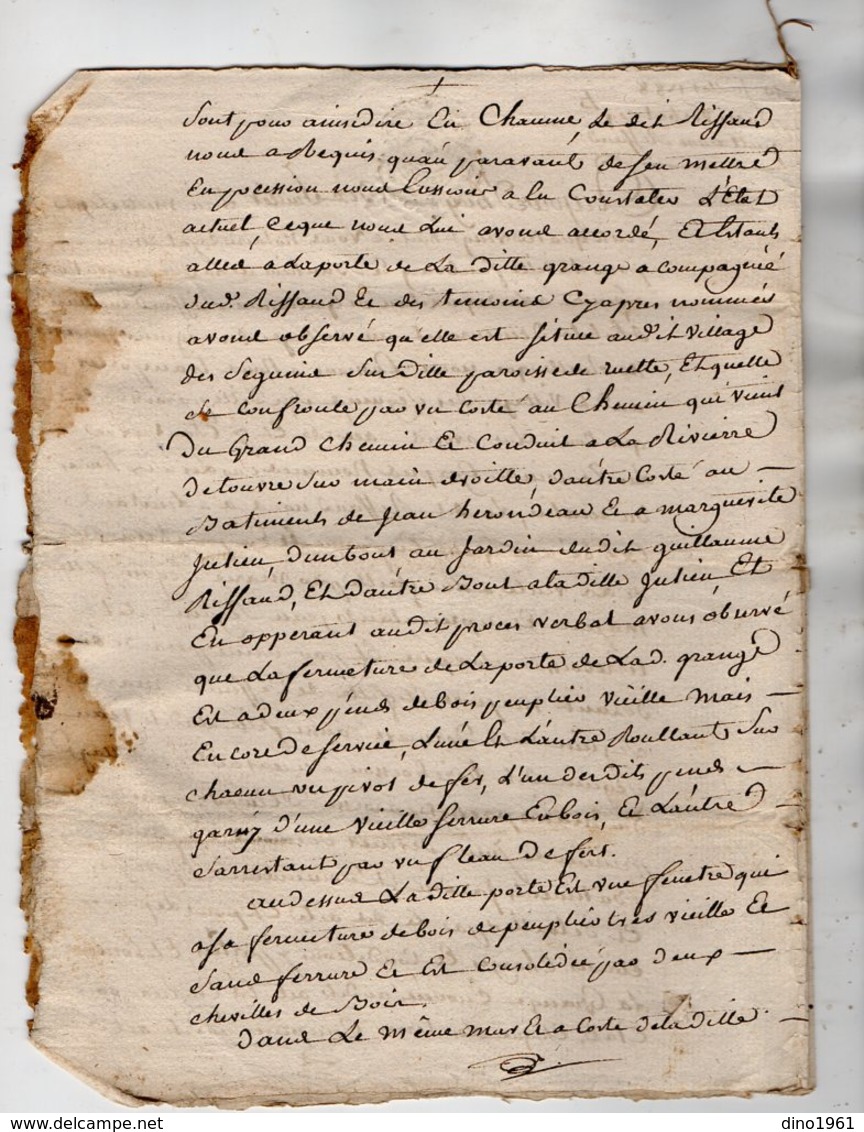 sont pour ainsi dire En Chaume, Le dit Riffaud
nous a Requis qu'au paravant de s'en mettre
En pocession nous Eussions a lui Constater L'Etat
actuel, Ce que nous Lui avons accordé, Et Estants
allés a La porte de La ditte grange acompagnés
dud. Riffaud Et des temoins Cyapres nommés
avons observé qu'elle est située audit village
des Seguins Sus ditte paroisse de ruelle, Et quelle
Se confronte par un Costé au Chemin qui vient
Du Grand Chemin Et Conduit a La Rivierre
De touvre sur main droitte, d'autre Costé au
Batiments de Jean herondeau Et a marguerite
Julien, d'un bout au Jardin dudit guillaume
Riffaud, Et d'autre Bout a la ditte Julien, Et
En opperant audit proces verbal avons observé
que La fermeture de La porte de Lad. grange
Est a deux pends de bois peuplier vieille mais
Encore De service, L'une Et L'autre Roullant Sur
chacun un pivot de fer, L'un des dits pends
garny d'une vieille serrure En bois, Et L'autre
S'arrestant par un fleau De fert.
au dessus La ditte porte Est une fenetre qui
a sa fermeture de bois de peuplier tres vieille Et
Sans ferrure Et Est Consolidée par deux
chevilles de Bois.
Dans Le même mur Et a Coste de la ditte
dino1961